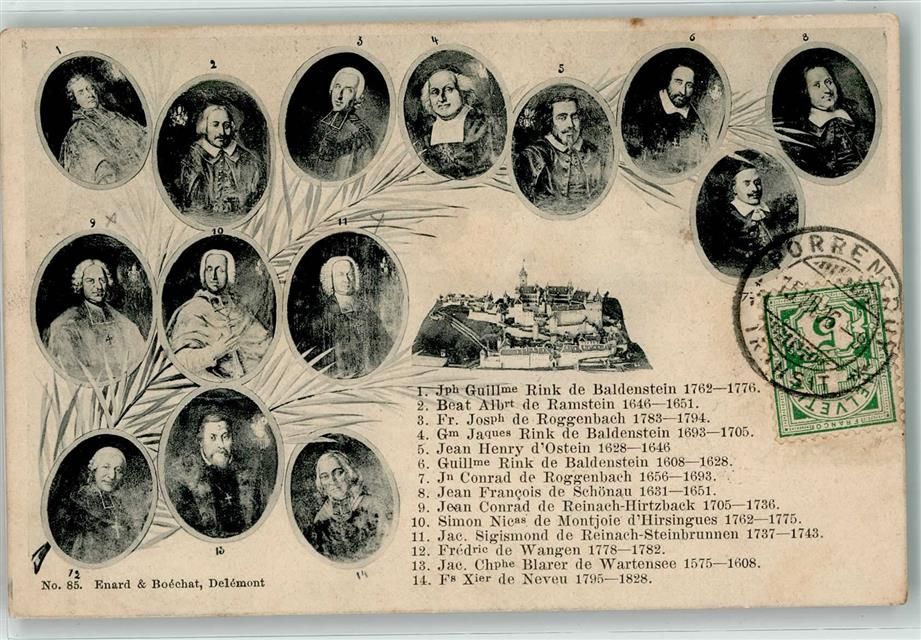 1
2
3
4
5
6
8
9
10
11
12
13
14
PORRENTRUY
5
HELVETIA
FRANCO
1. Jph Guillme Rink de Baldenstein 1762—1776.
2. Beat Albrt de Ramstein 1646—1651.
3. Fr. Josph de Roggenbach 1783—1794.
4. Gm Jaques Rink de Baldenstein 1693—1705.
5. Jean Henry d'Ostein 1628—1646
6. Guillme Rink de Baldenstein 1608—1628.
7. Jn Conrad de Roggenbach 1656—1693.
8. Jean François de Schönau 1631—1651.
9. Jean Conrad de Reinach-Hirtzback 1705—1736.
10. Simon Nicas de Montjoie d'Hirsingues 1762—1775.
11. Jac. Sigismond de Reinach-Steinbrunnen 1737—1743.
12. Frédric de Wangen 1778—1782.
13. Jac. Chphe Blarer de Wartensee 1575—1608.
14. Fs Xier de Neveu 1795—1828.
No. 85. Enard & Boéchat, Delémont